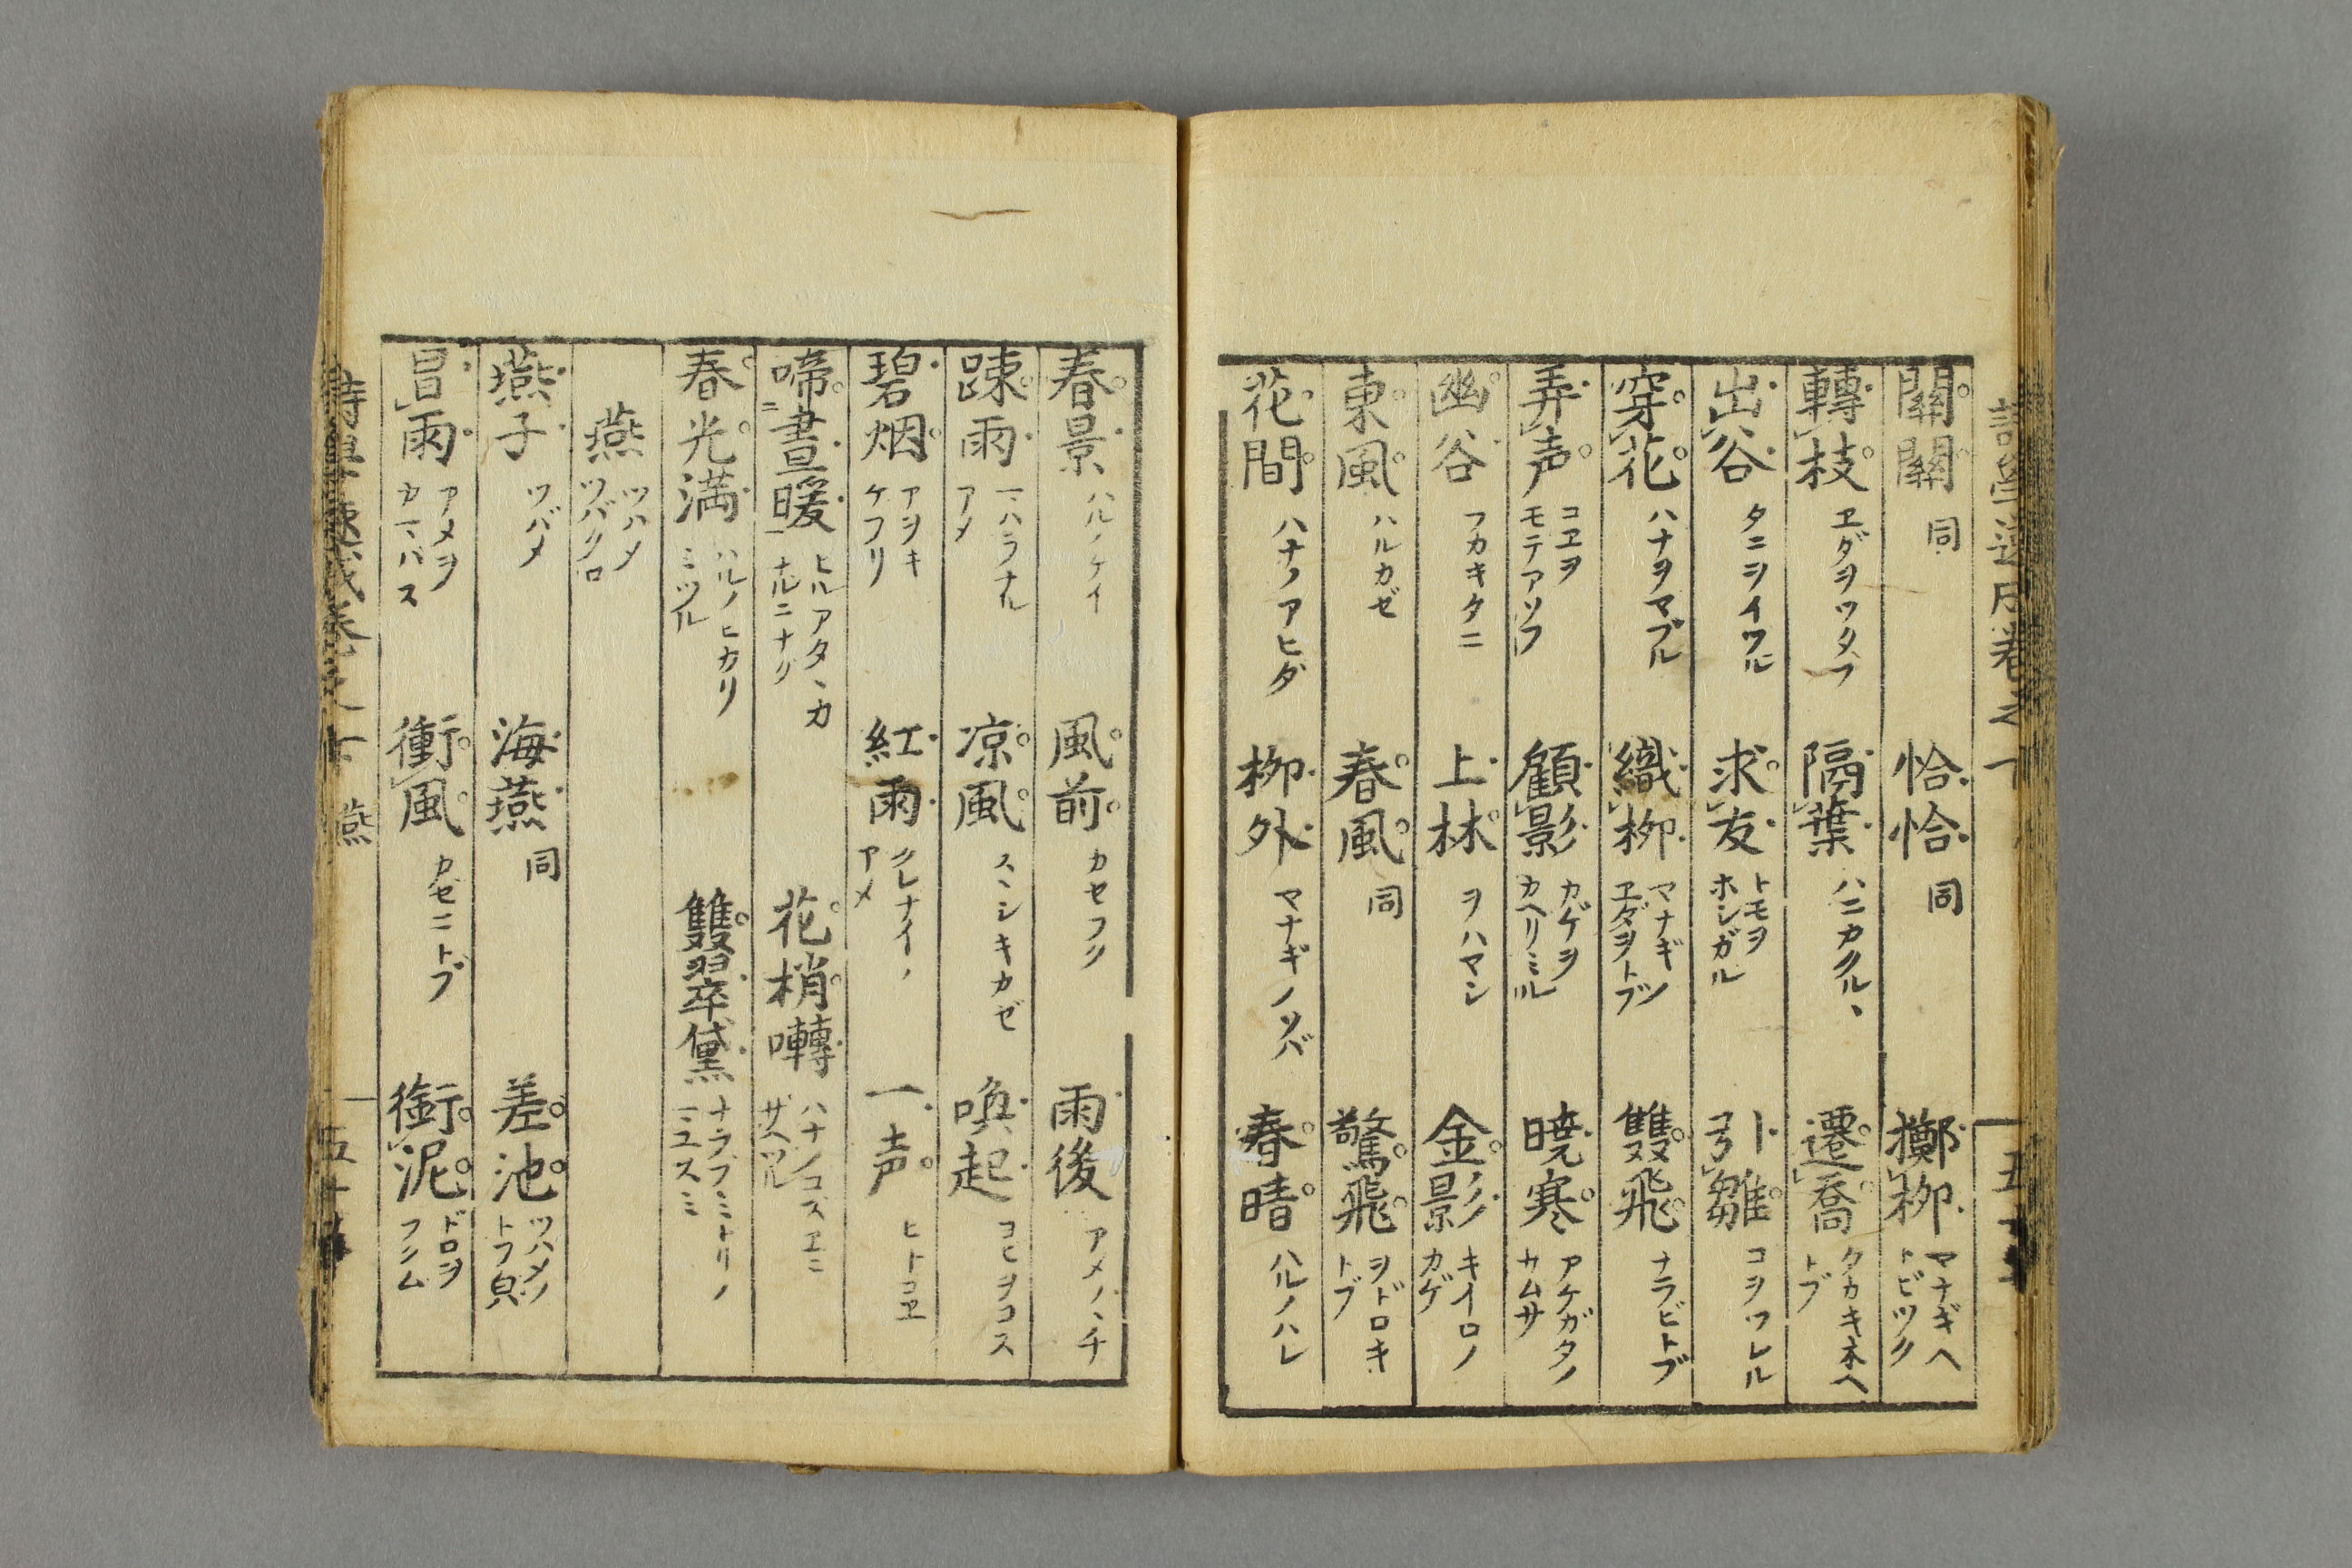 關關 同 恰恰 同 擲柳 マナギヘ トビツク
轉枝 ヱダヲウタフ 隔葉 ハニカクルヽ 遷喬 タカキネヘ トブ
出谷 タニヲイヅル 求友 トモヲ ホシガル 引雛 コヲツレル
穿花 ハナヲマブル 織柳 マナギノ ヱダヲトブ 雙飛 ナラビトブ
弄声 コヱヲ モテアソフ 顧影 カゲヲ カヘリミル 暁寒 アケガタノ サムサ
幽谷 フカキタニ 上林 ヲハマシ 金影 キイロノ カゲ
東風 ハルカゼ 春風 同 驚飛 ヲドロキ トブ
花間 ハナノアヒダ 柳外 マナギノソバ 春晴 ハルノハレ
春景 ハルノケイ 風前 カセフク 雨後 アメノヽチ
踈雨 マハラナル アメ 凉風 スヽシキカゼ 喚起 コヒヲコス
碧烟 アヲキ ケフリ 紅雨 クレナイノ アメ 一声 ヒトコヱ
啼晝暖 ヒルアタヽカ ナルニナク 花梢囀 ハナノコズヱニ サヘヅル
春光満 ハルノヒカリ ミツル 雙翠黛 ナラブミトリノ マユスミ
燕 ツハメ ツバクロ
燕子 ツバメ 海燕 同 差池 ツハメノ トフ皃
冒雨 アメヲ カマバス 衝風 カゼニトブ 銜泥 ドロヲ フクム
詩學逢原巻之下 燕 五十